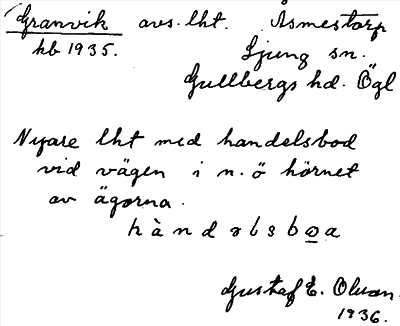 Granvik avs. lht. Åsmestorp
kb 1935. Ljung sn.
Gullbergs hd. Ögl
Nyare lht med handelsbod
vid vägen i n. ö hörnet
av ägorna.
hàndəlsbo̲a
Gustaf E. Olson.
1936.